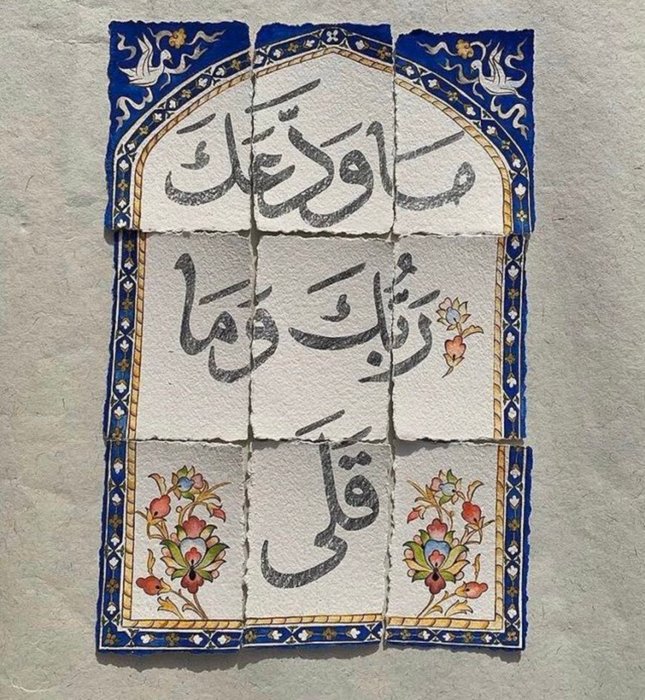 ما وَدَّعَكَ
رَبُّكَ وَمَا
قَلَى